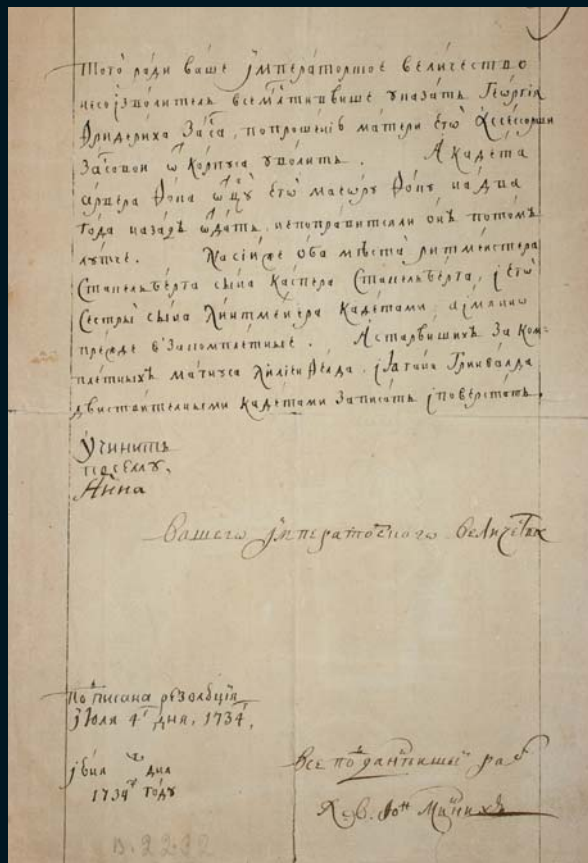 Того ради ваше імператорское величество
несоізволитель всемлтивѣише указать Геѡргія
Фридериха Заса, попрошенію матери его Асессорши
Засовои ѿ корпуса уволить. А кадета
Фона ѿцу его маеору Фону на два
года назадъ ѿдать, непоправитсяли онъ потомъ
лутче. Насіиже оба мѣста ритмеистера
Стапельберта сына Каспера Стапельберта, і его
сестры сына кадетами, аімянно
прежде взакомплетные. Астарѣишихъ Заком=
плетныхъ магнуса Лиліенфелда, іІагана Гринвалда
двиствителными кадетами записать іповерстать.
Учинить
посему,
Анна
вашего імператорского величества
Подписана резолюція
іюля 4 дня, 1734,
іюня дня
1734 году
всеподданнѣишыи раб
фон Миних
В. 2232